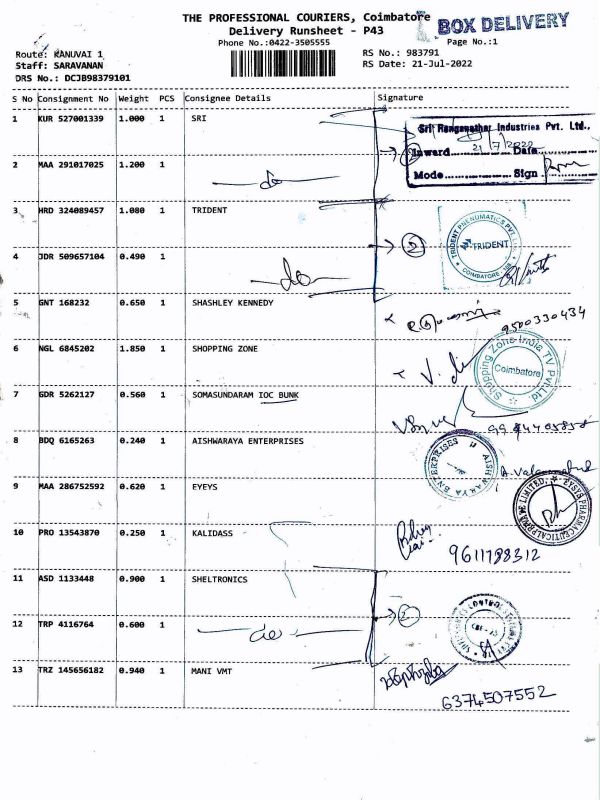 THE PROFESSIONAL COURIERS, Coimbatore
BOX DELIVERY
Delivery Runsheet - P43
Phone No.:0422-3505555
Page No.:1
Route: KANUVAI 1
RS No.: 983791
Staff: SARAVANAN
RS Date: 21-Jul-2022
DRS No.: DCJB98379101
S No Consignment No Weight PCS Consignee Details Signature
1 KUR 527001339 1.000 1 SRI
Sri Ranganathar Industries Pvt. Ltd.,
Inward 21/7/2022 Date
Mode Sign
2 MAA 291017025 1.200 1 do
3 HRD 324089457 1.080 1 TRIDENT
2
TRIDENT PNEUMATICS PVT. LTD.
TRIDENT
COIMBATORE
4 JDR 509657104 0.490 1 do
5 GNT 168232 0.650 1 SHASHLEY KENNEDY
9500330434
6 NGL 6845202 1.850 1 SHOPPING ZONE
Shopping Zone India TV Pvt.Ltd.
Coimbatore
7 GDR 5262127 0.560 1 SOMASUNDARAM IOC BUNK
8 BDQ 6165263 0.240 1 AISHWARAYA ENTERPRISES
AISHWARYA ENTERPRISES
9 MAA 286752592 0.620 1 EYEYS
EYSYS PHARMACEUTICAL PRIVATE LIMITED
10 PRO 13543870 0.250 1 KALIDASS
9611788312
11 ASD 1133448 0.900 1 SHELTRONICS
2
12 TRP 4116764 0.600 1 do
13 TRZ 145656182 0.940 1 MANI VMT
6374507552